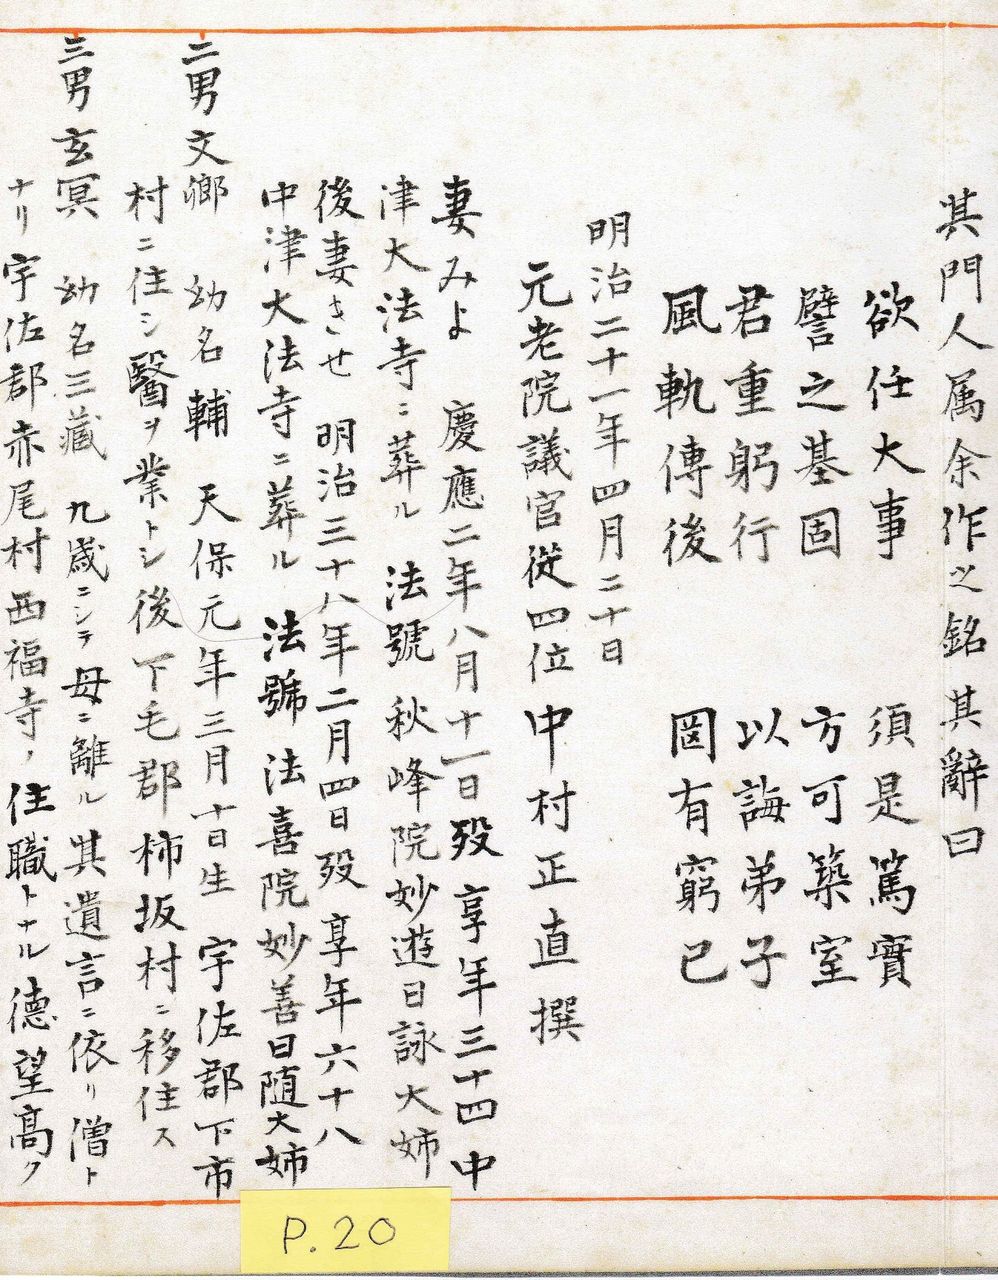 其門人属余作之銘其辭曰
欲任大事　須是篤實
譬之基固　方可築室
君重躬行　以誨弟子
風軌傳後　罔有窮已
明治二十一年四月二十日
元老院議官從四位中村正直撰
妻みよ　慶應二年八月十一日歿享年三十四中
津大法寺ニ葬ル　法號秋峰院妙遊日詠大姉
後妻きせ　明治三十八年二月四日歿享年六十八
中津大法寺ニ葬ル　法號法喜院妙善日随大姉
二男文郷　幼名輔　天保元年三月十日生　宇佐郡下市
村ニ住シ醫ヲ業トシ後下毛郡柿坂村ニ移住ス
三男玄冥　幼名三藏　九歳ニシテ母ニ離ル其遺言ニ依リ僧ト
ナリ宇佐郡赤尾村西福寺ノ住職トナル德望高ク
P.20